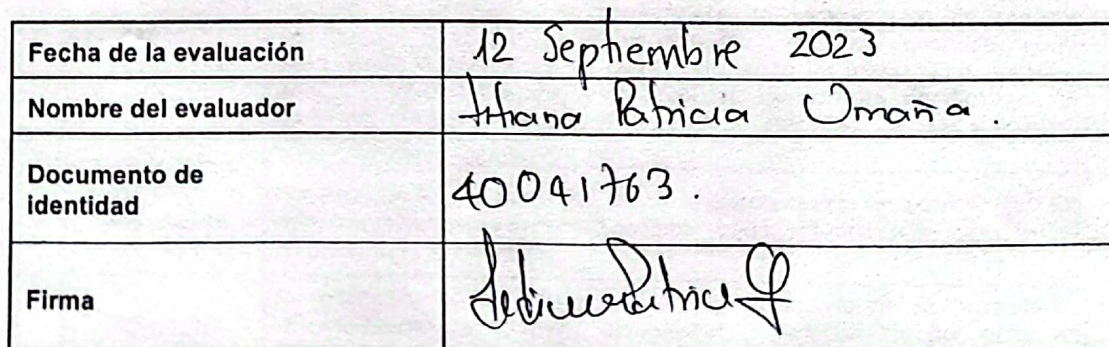 Fecha de la evaluación 12 Septiembre 2023
Nombre del evaluador Titiana Patricia Omaña.
Documento de
identidad 40041763.
Firma